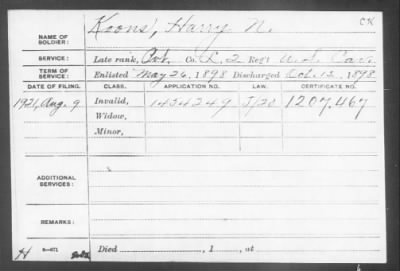 CK
NAME OF SOLDIER: Koons, Harry N.
SERVICE: Late rank, Pvt. Co. L, 2 Reg't U.S. Cav.
TERM OF SERVICE: Enlisted May 26, 1898 Discharged Oct. 12, 1898
DATE OF FILING. CLASS. APPLICATION NO. LAW. CERTIFICATE NO.
1921, Aug. 9 Invalid, 1434249 J/20 1207,467
Widow,
Minor,
ADDITIONAL SERVICES:
REMARKS:
Died , 1 , at